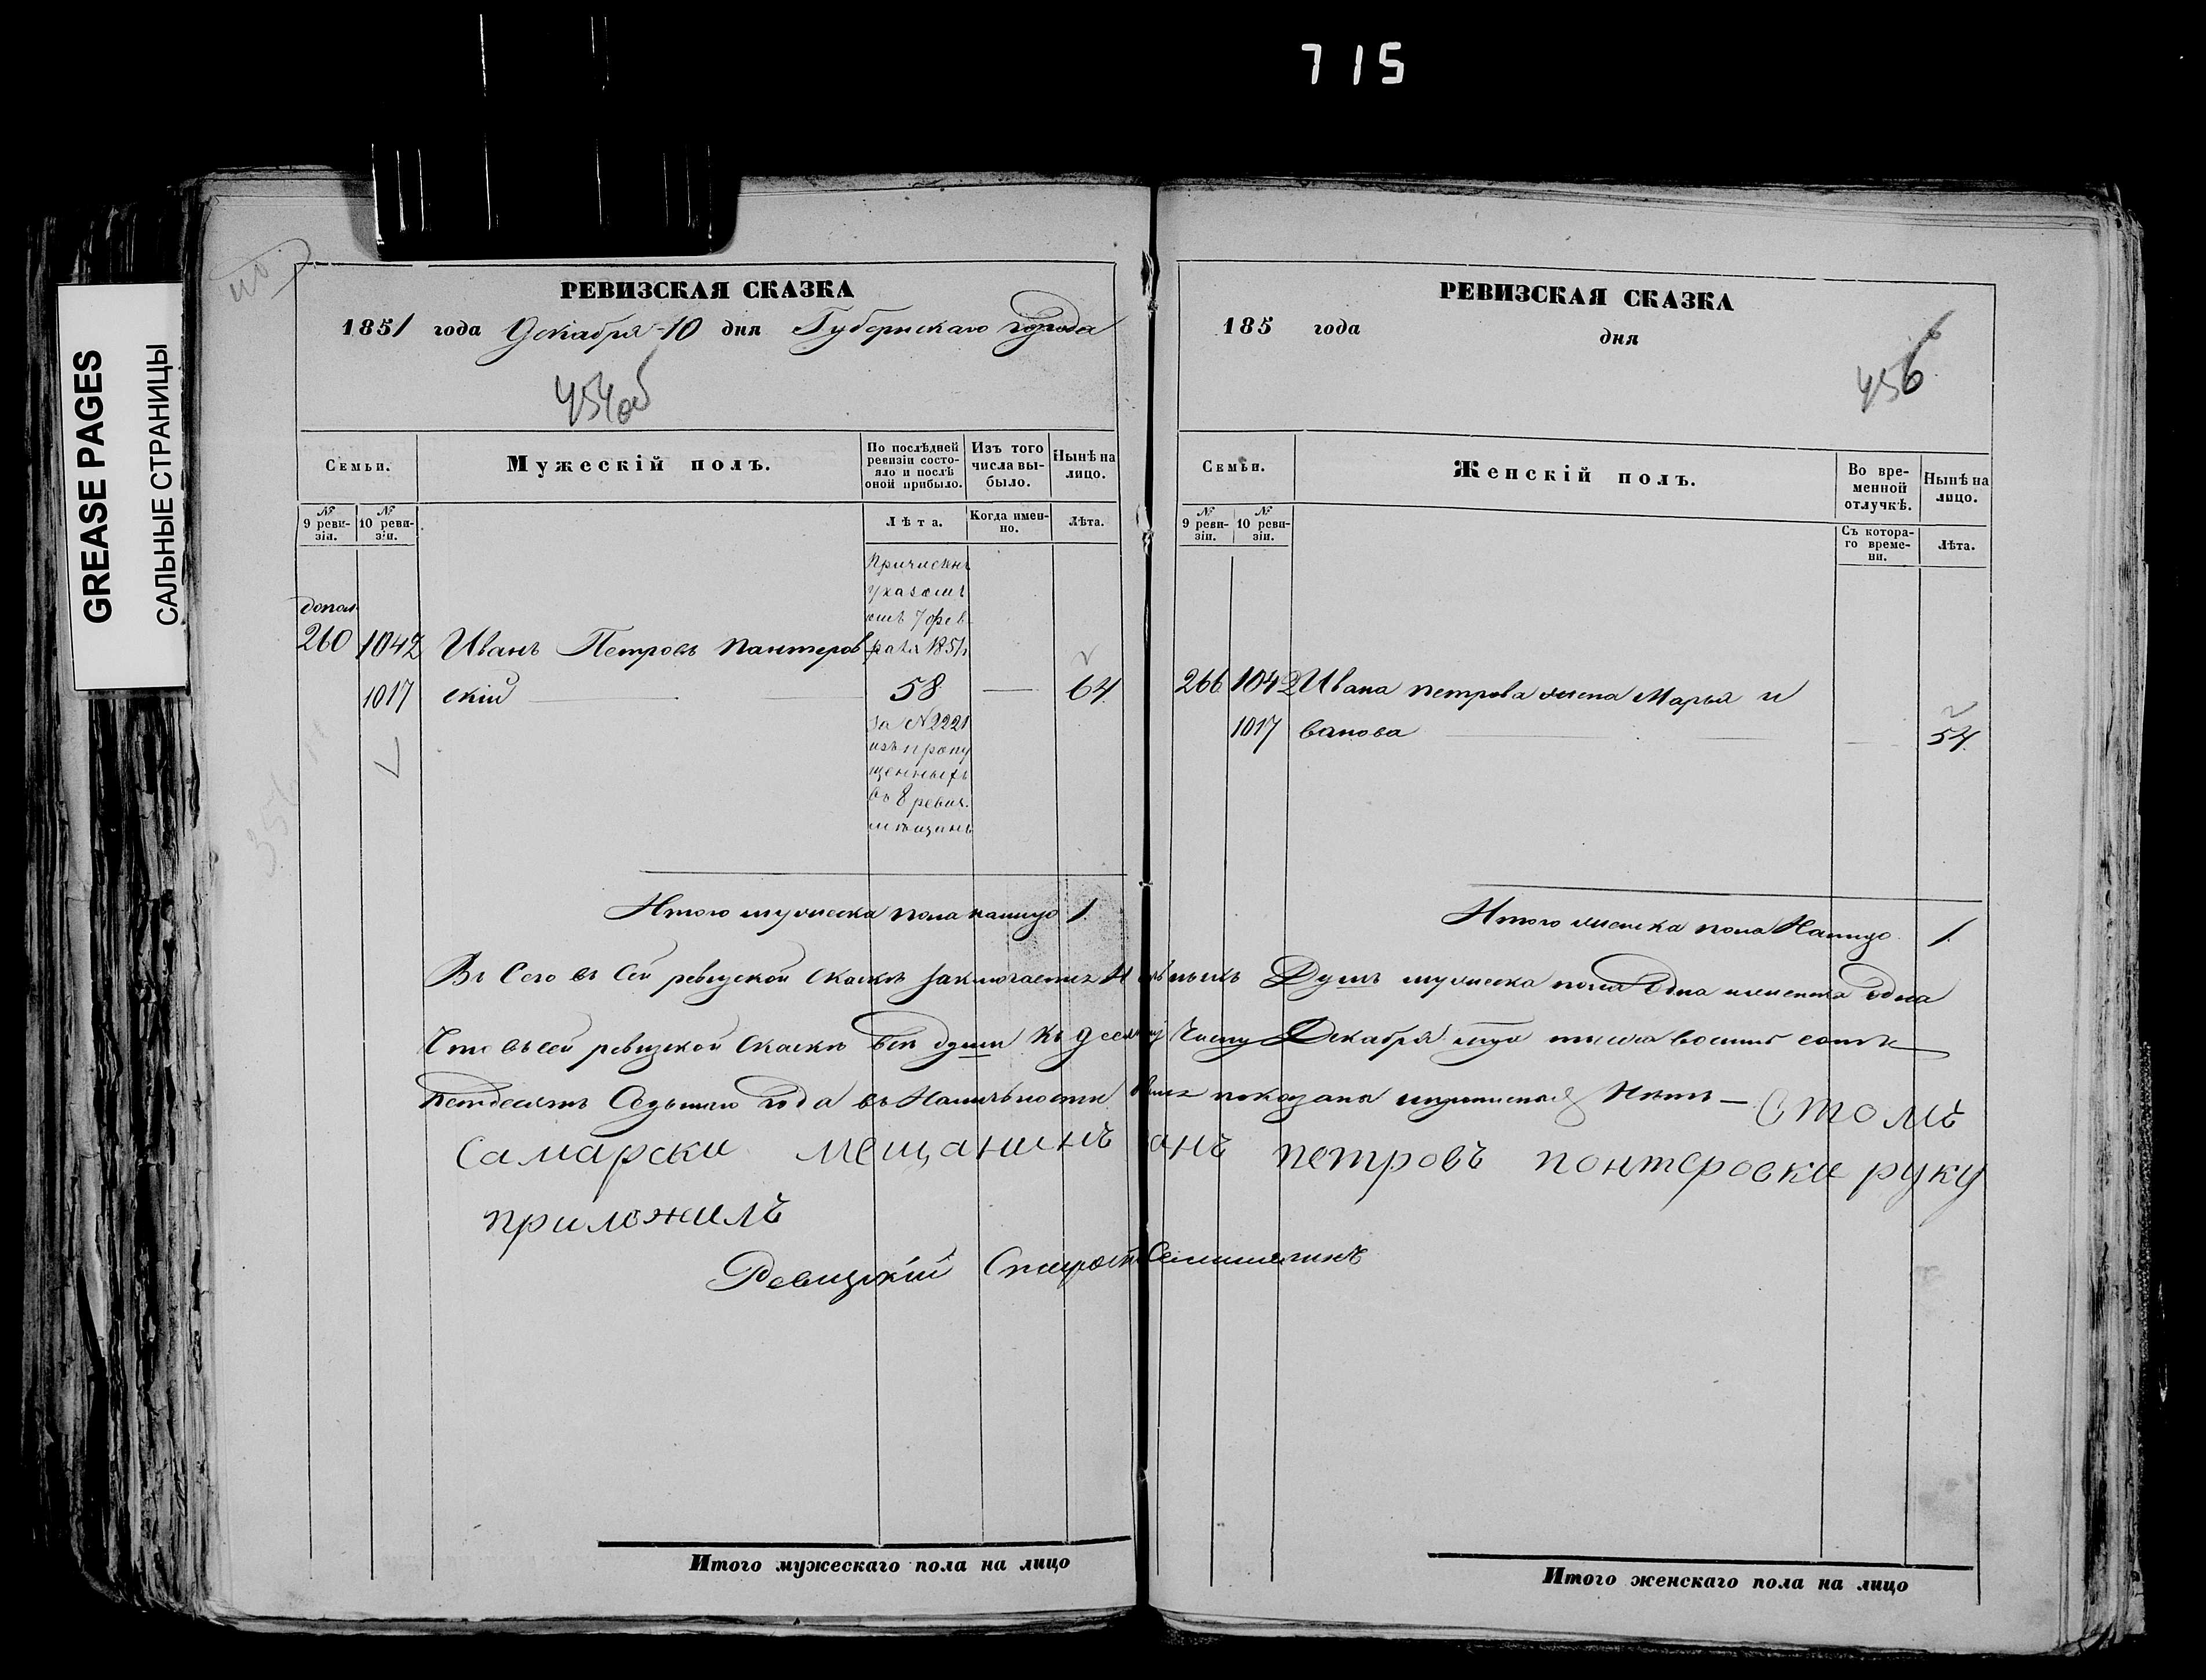 715
GREASE PAGES
САЛЬНЫЕ СТРАНИЦЫ
РЕВИЗСКАЯ СКАЗКА
1851 года Декабря 10 дня Губернскаго города
454об
Семьи.
Мужескій полъ.
По послѣдней ревизіи состо-
яло и послѣ
оной прибыло.
Изъ того
числа вы-
было.
Нынѣ на
лицо.
№
9 реви-
зіи.
№
10 реви-
зіи.
Лѣта.
Когда имен-
но.
Лѣта.
допол
260 1042 Иванъ Петровъ Пантеров
1017 скій 58 64
Причислен
указомъ
отъ 7 фев
раля 1851г
за №2221
изъ пропу
щенныхъ
въ 8 ревиз.
мѣщанъ
Итого мужеска пола налицо 1
РЕВИЗСКАЯ СКАЗКА
185 года
дня
456
Семьи.
Женскій полъ.
Во вре-
менной
отлучкѣ.
Нынѣ на
лицо.
№
9 реви-
зіи.
№
10 реви-
зіи.
Съ котора-
го време-
ни.
Лѣта.
266 1042 Ивана петрова жена Марья и
1017 ванова 54
Итого женска пола Налицо 1
В Сего въ Сей ревизской Сказкѣ заключается Душъ мужеска пола Одна женска Одна
Что въ сей ревизской Сказкѣ Всѣ души Къ Числу Декабря тысяча восемь сотъ
петдесятъ Седьмого Года въ показана Нѣтъ — втомъ
Самарски мещанинъ анъ петровъ понтеровки руку
приложилъ
Ревизскій
Итого мужескаго пола на лицо
Итого женскаго пола на лицо